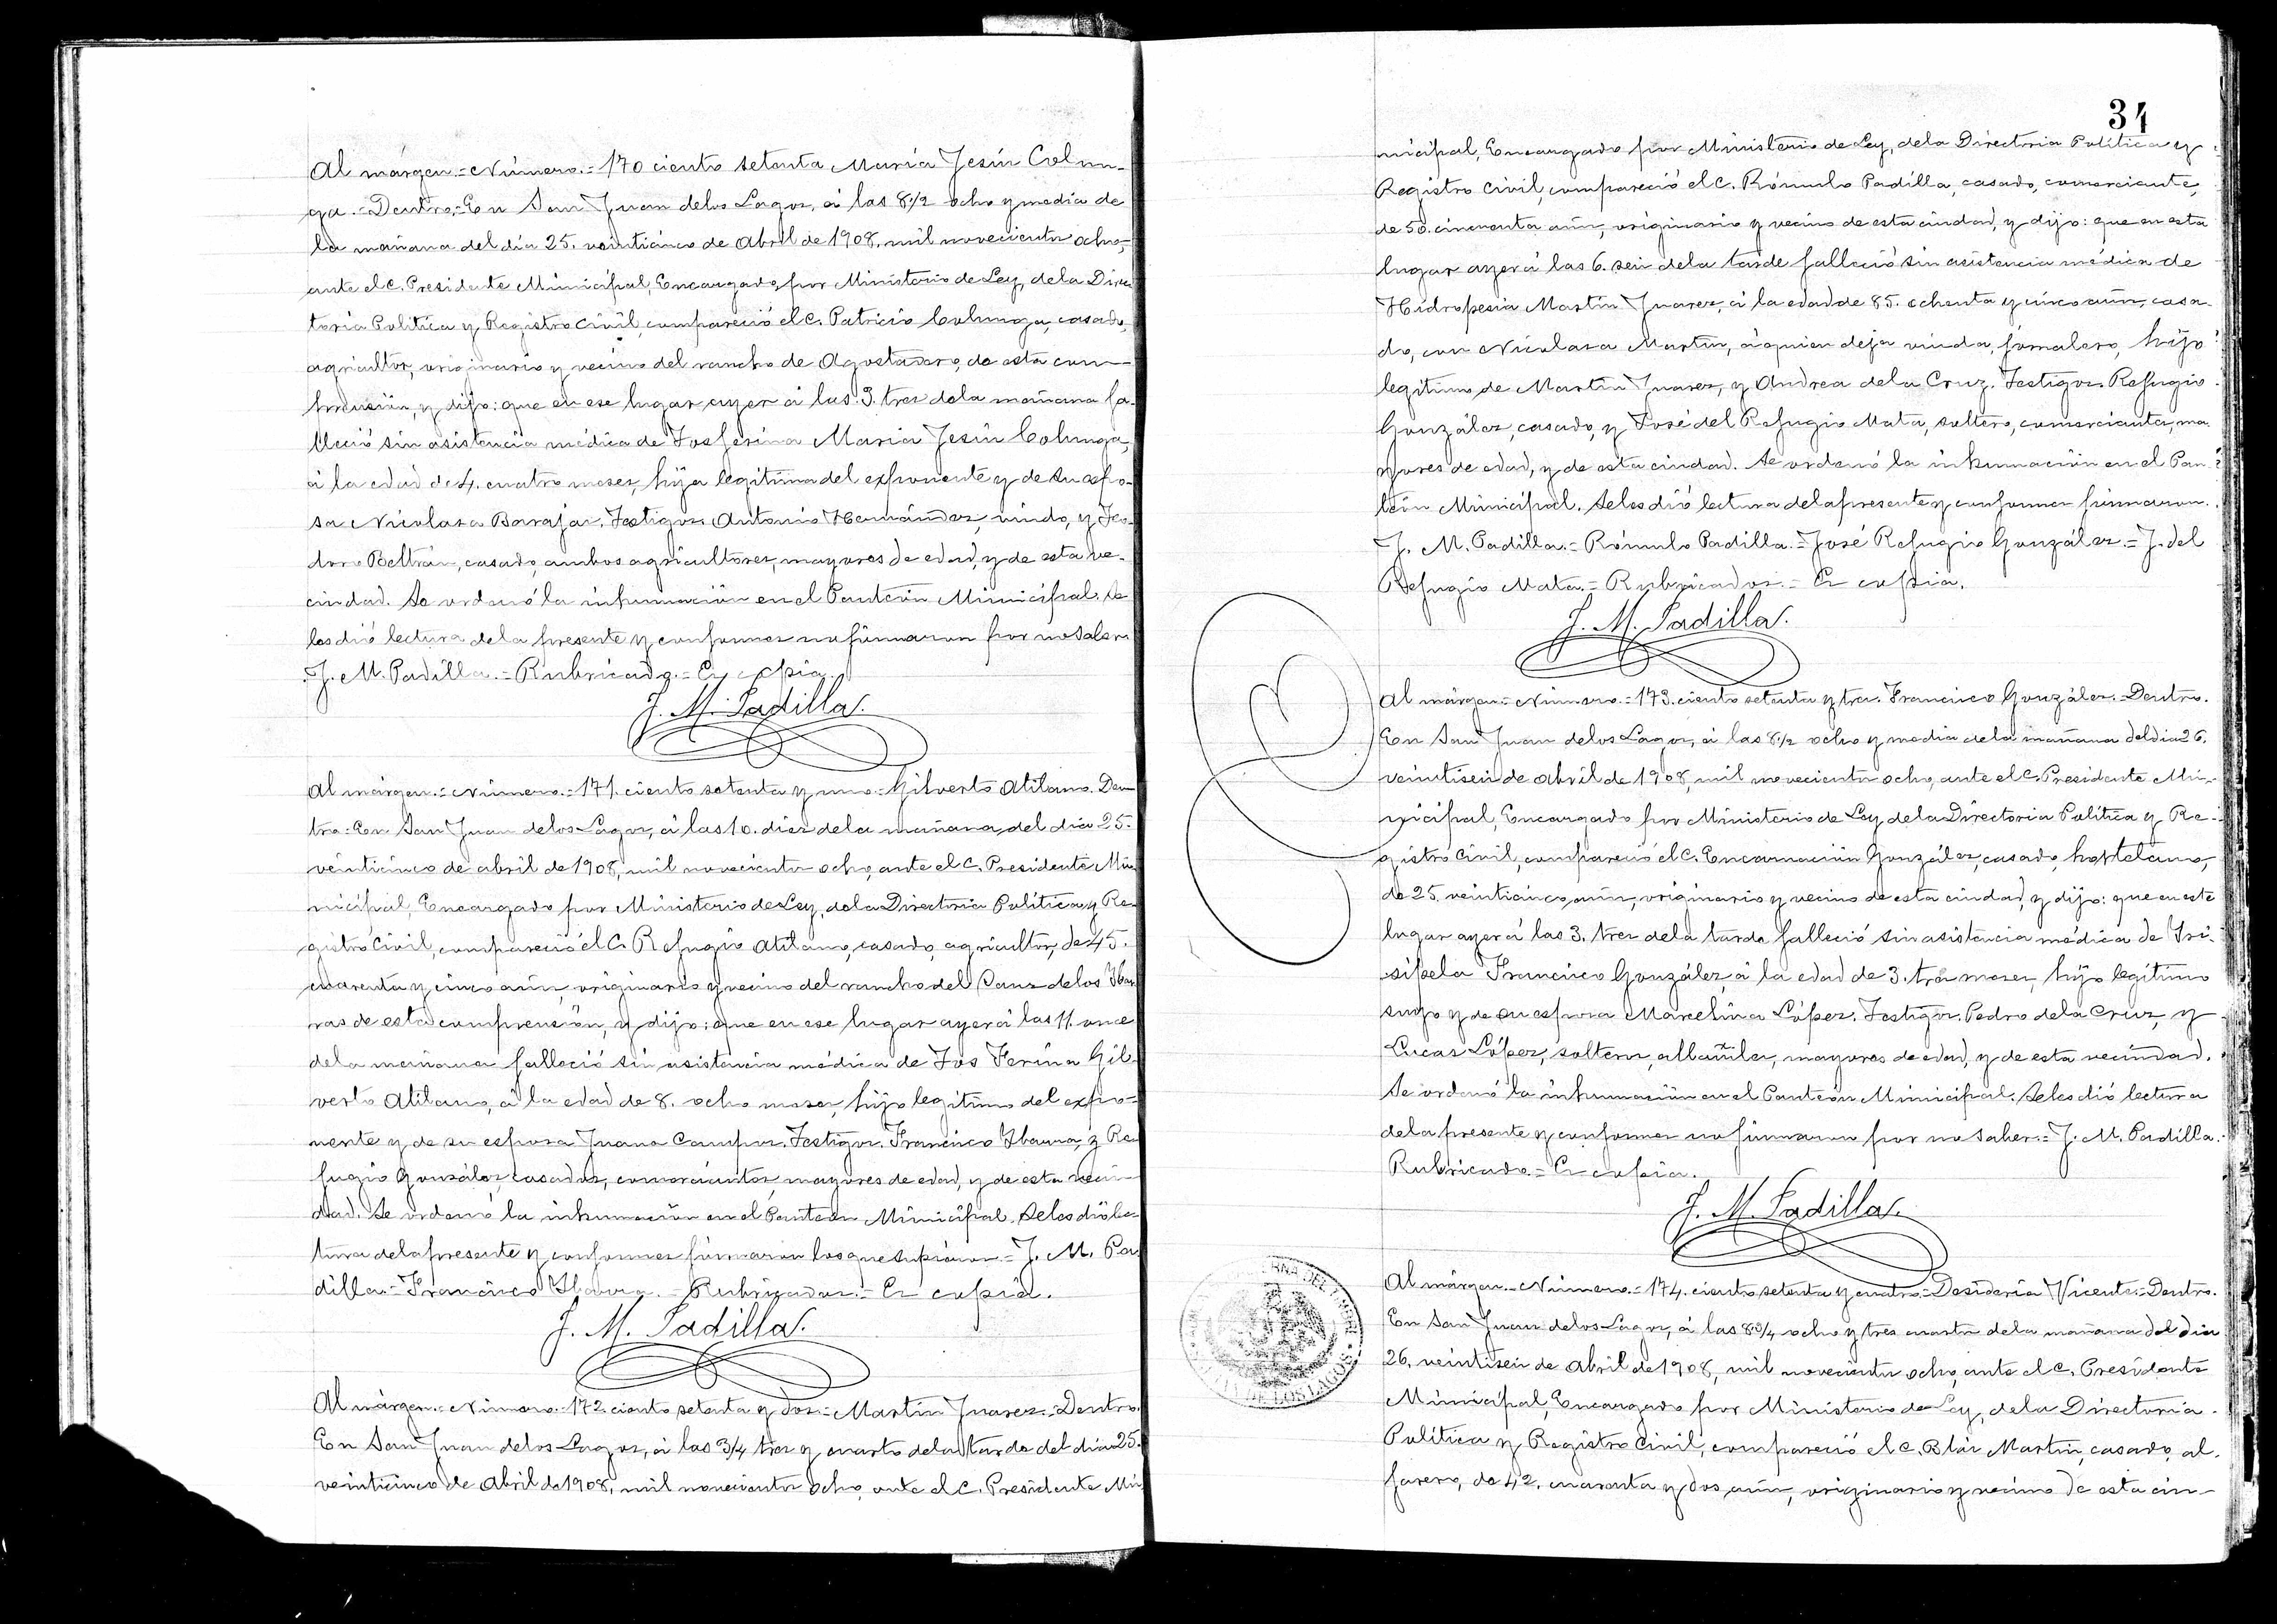 Al márgen.=Número.=170 ciento setenta María Jesús Colun-
ga.=Dentro.=En San Juan delos Lagos, á las 8 1/2 ocho y media de
la mañana del día 25. veinticinco de Abril de 1908, mil novecientos ocho,
ante el C. Presidente Municipal, Encargado, por Ministerio de Ley, dela Direc
toria Política y Registro civil, compareció el C. Patricio Colunga, casado,
agricultor, originario y vecino del rancho de Agostadero, de esta com-
prensión, y dijo: que en ese lugar ayer á las 3. tres dela mañana fa-
lleció sin asistencia médica de Tosferina Maria Jesús Colunga,
á la edad de 4. cuatro meses, hija legítima del exponente y de su espo-
sa Nicolasa Barajas. Testigos Antonio Hernández, viudo, y Teo-
doro Beltrán, casado, ambos agricultores, mayores de edad, y de esta ve-
cindad. Se ordenó la inhumación en el Panteón Municipal. Se
les dió lectura dela presente y conformes no firmaron por no saber.
J. M. Padilla.=Rubricado.=Es copia.
J. M. Padilla.
Al márgen.=Número.=171. ciento setenta y uno.=Gilverto Atilano. Den-
tro: En San Juan delos Lagos, á las 10. diez dela mañana del día 25.
veinticinco de abril de 1908, mil novecientos ocho, ante el C. Presidente Mu-
nicipal, Encargado por Ministerio de Ley, dela Directoria Política y Re-
gistro Civil, compareció el C. Refugio Atilano, casado, agricultor, de 45.
cuarenta y cinco años, originario y vecino del rancho del Paus delos Ibar
ras de esta comprensión, y dijo: que en ese lugar ayer á las 11. once
dela mañana falleció sin asistencia médica de Tos Ferina Gil-
verto Atilano, á la edad de 8. ocho meses, hijo legítimo del expo-
nente y de su esposa Juana Campos. Testigos. Francisco Ibarra, y Re-
fugio González, casados, comerciantes, mayores de edad, y de esta vecin-
dad. Se ordenó la inhumación en el Panteón Municipal. Seles dió lec-
tura dela presente y conformes firmaron los que supieron.=J. M. Pa-
dilla.=Francisco Ibarra.=Rubricados.=Es copia.
J. M. Padilla.
Al márgen.=Número.=172. ciento setenta y dos.=Martín Juarez.=Dentro.
En San Juan delos Lagos, á las 3 1/4 tres y cuarto dela tarde del día 25.
veinticinco de Abril de 1908, mil novecientos ocho, ante el C. Presidente Mu-
34
nicipal, Encargado por Ministerio de Ley, dela Directoria Política y
Registro Civil, compareció el C. Rómulo Padilla, casado, comerciante,
de 50. cincuenta años, originario y vecino de esta ciudad, y dijo: que en este
lugar ayer á las 6. seis dela tarde falleció sin asistencia médica de
Hidropesía Martín Juarez, á la edad de 85. ochenta y cinco años, casa-
do, con Nicolasa Martín, á quien deja viuda, jornalero, hijo
legítimo de Martín Juarez, y Andrea dela Cruz. Testigos. Refugio
González, casado, y José del Refugio Mata, soltero, comerciantes, ma-
yores de edad, y de esta ciudad. Se ordenó la inhumación en el Pan-
teón Municipal. Seles dió lectura dela presente y conformes firmaron.
J. M. Padilla.=Rómulo Padilla.=José Refugio González.=J. del
Refugio Mata.=Rubricados.=Es copia.
J. M. Padilla.
Al márgen.=Número.=173. ciento setenta y tres. Francisco González.=Dentro.
En San Juan delos Lagos, á las 8 1/2 ocho y media dela mañana del día 26.
veintiseis de Abril de 1908, mil novecientos ocho, ante el C. Presidente Mu-
nicipal, Encargado por Ministerio de Ley dela Directoria Política y Re-
gistro Civil, compareció el C. Encarnación González, casado, hortelano,
de 25. veinticinco años, originario y vecino de esta ciudad, y dijo: que en este
lugar ayer á las 3. tres dela tarde falleció sin asistencia médica de Iri-
sipela Francisco González, á la edad de 3. tres meses, hijo legítimo
suyo y de su esposa Marcelina López. Testigos. Pedro dela Cruz, y
Lucas López, solteros, albañiles, mayores de edad, y de esta vecindad.
Se ordenó la inhumación en el Panteón Municipal. Seles dió lectura
dela presente y conformes no firmaron por no saber.=J. M. Padilla.
Rubricado.=Es copia.
J. M. Padilla.
Al márgen.=Número.=174. ciento setenta y cuatro.=Desideria Vicente.=Dentro.
En San Juan delos Lagos, á las 8 3/4 ocho y tres cuartos dela mañana del día
26. veintiseis de Abril de 1908, mil novecientos ocho, ante el C. Presidente
Municipal, Encargado por Ministerio de Ley, dela Directoria
Política y Registro Civil, compareció el C. Blás Martín, casado, al-
farero, de 42. cuarenta y dos años, originario y vecino de esta ciu-
DE LOS LAGOS